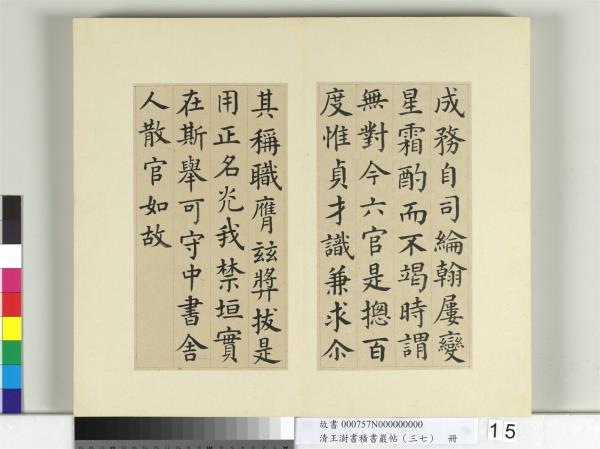 成務自司綸翰屢變
星霜酌而不竭時謂
無對今六官是摠百
度惟貞才識兼求尒
其稱職膺玆奬拔是
用正名光我禁垣實
在斯舉可守中書舍
人散官如故
故書 000757N000000000
清王澍書積書巖帖（三七） 冊
15